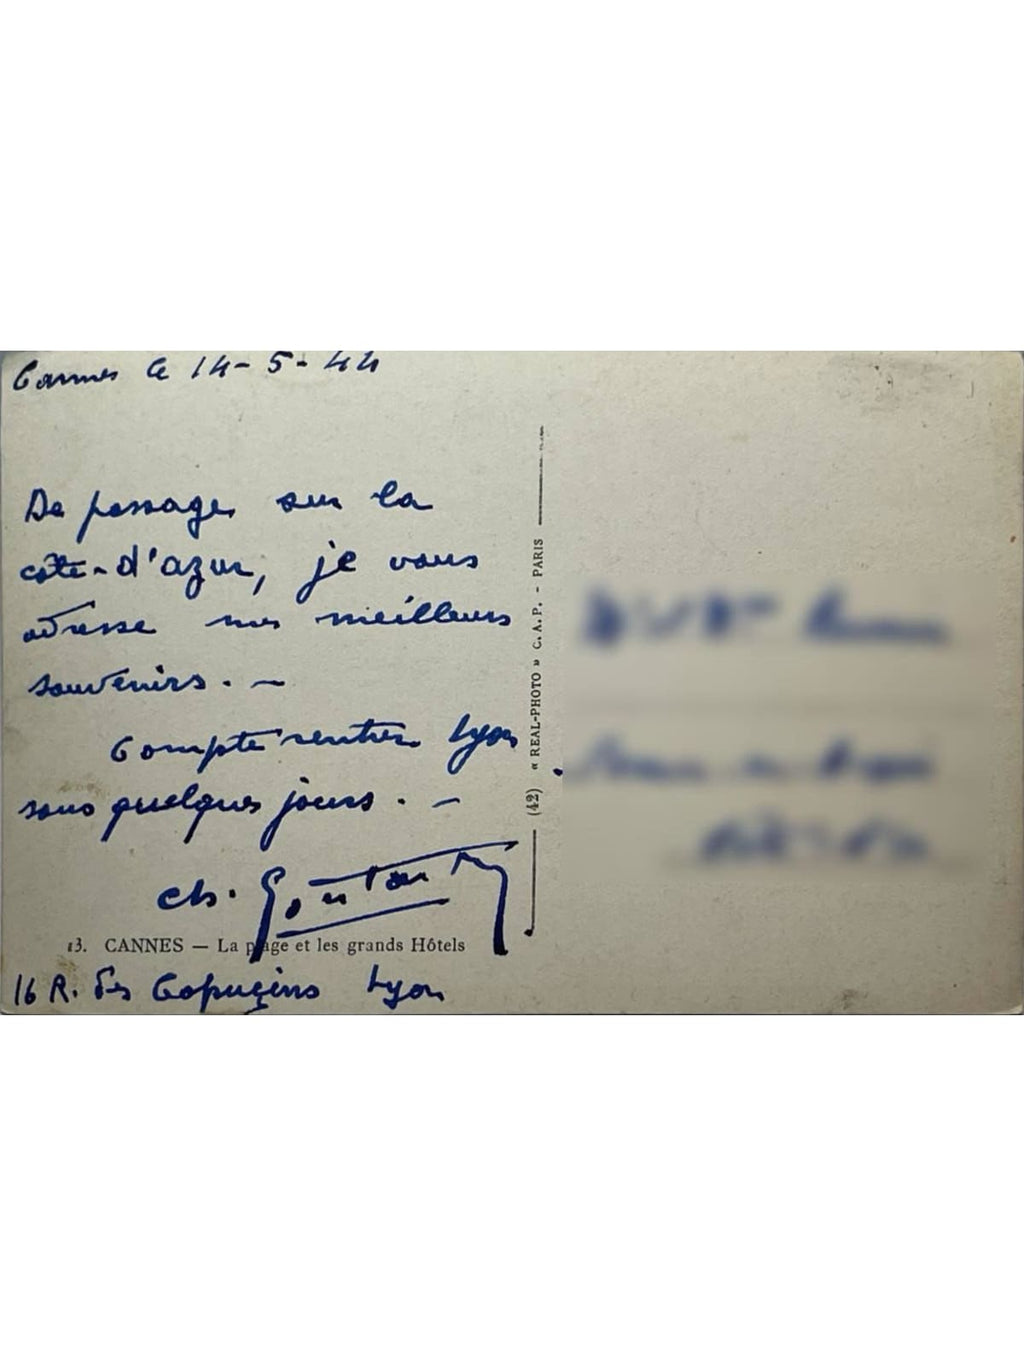 Cannes le 14-5-44
De passage sur la
côte-d'azur, je vous
adresse mes meilleurs
souvenirs. —
Compte rentrer Lyon
sous quelques jours. —
ch.
13. CANNES — La plage et les grands Hôtels
16 R. des Capuçins Lyon
(42) « REAL-PHOTO » C. A. P. - PARIS